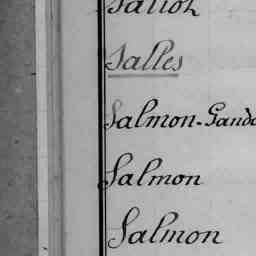 Salles
Salmon-
Salmon
Salmon